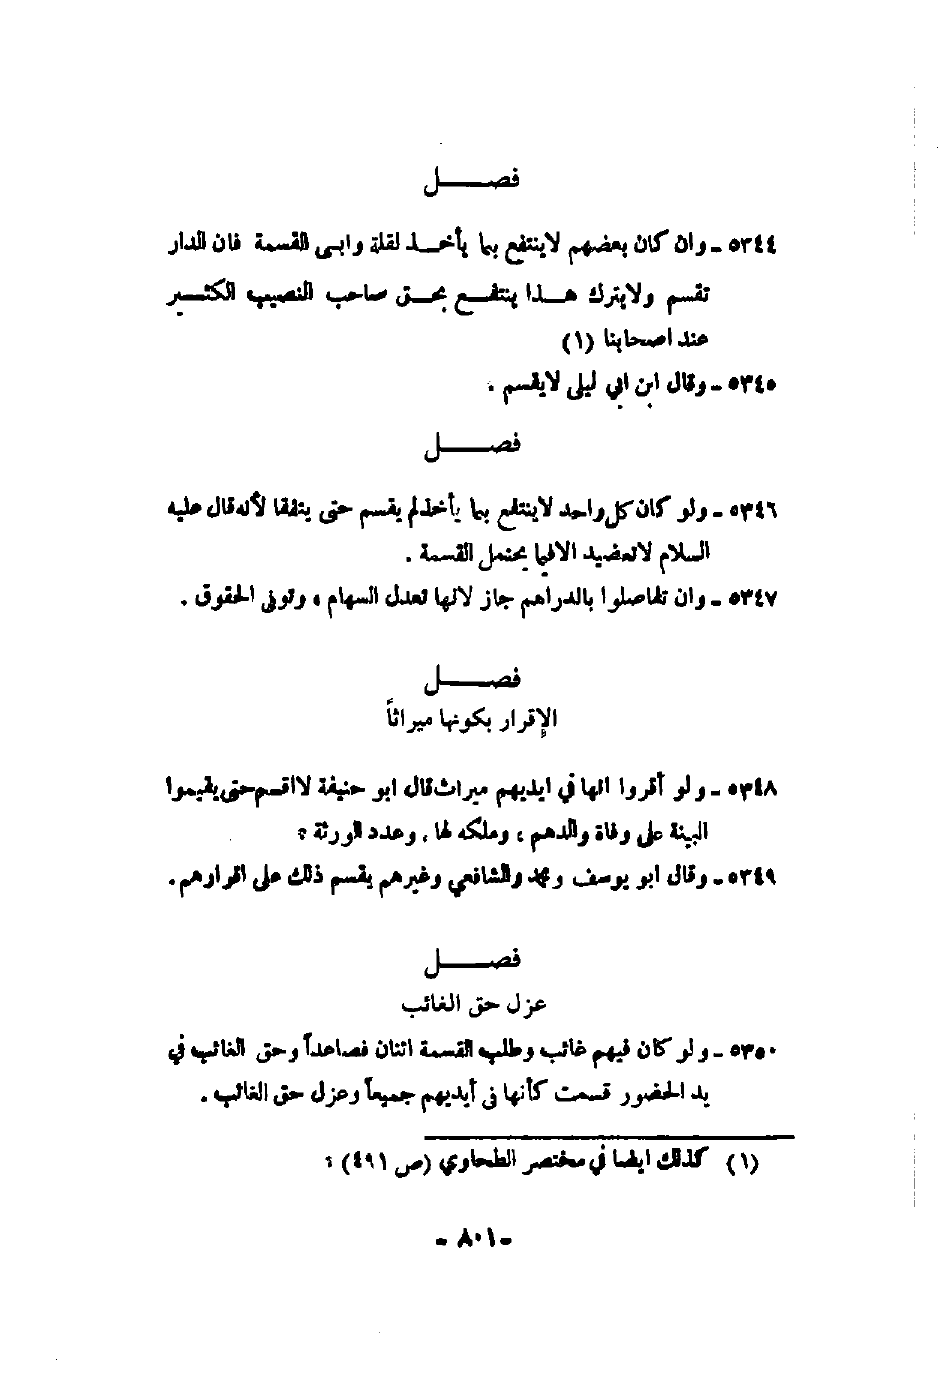 فصــــل
٥٣٤٤ ـ وان كان بعضهم لاينتفع بما يأخـــذ لقلة وابـى القسمة فان الدار
تقسم ولايترك هـــذا ينتفـــع بحـق صاحب النصيب الكثـــير
عند اصحابنا (١)
٥٣٤٥ ـ وقال ابن ابي ليلى لايقسم .
فصــــل
٥٣٤٦ ـ ولو كان كل واحد لاينتفع بما يأخذلم يقسم حتى يتفقا لأنه قال عليه
السلام لاتعضيد الافيما يحتمل القسمة .
٥٣٤٧ ـ وان تفاصلوا بالدراهم جاز لانها تعدل السهام ، وتوفى الحقوق .
فصــــل
الإقرار بكونها ميراثاً
٥٣٤٨ ـ ولو أقروا انها في ايديهم ميراث قال ابو حنيفة لااقسم حتى يقيموا
البينة على وفاة والدهم ، وملكه لها ، وعدد الورثة ؟
٥٣٤٩ ـ وقال ابو يوسف ومحمد والشافعي وغيرهم يقسم ذلك على اقرارهم .
فصــــل
عزل حق الغائب
٥٣٥٠ ـ ولو كان فيهم غائب وطلب القسمة اثنان فصاعداً وحق الغائب في
يد الحضور قسمت كأنها في أيديهم جميعاً وعزل حق الغائب .
(١) كذلك ايضا في مختصر الطحاوي (ص ٤٩١) ؟
- ٨٠١ -